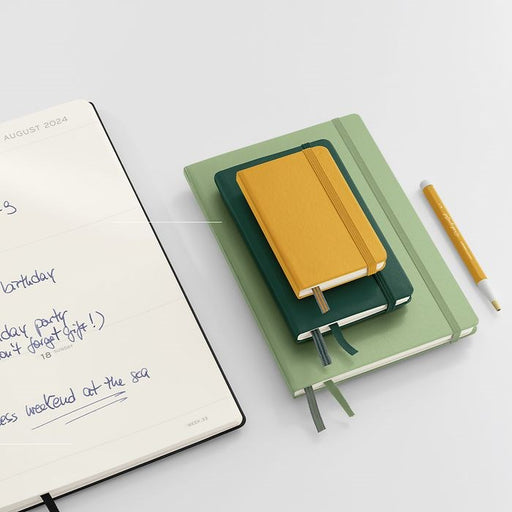 AUGUST 2024
birthday
day party
on't forget gift!)
18 SUNDAY
ess weekend at the sea
WEEK 33